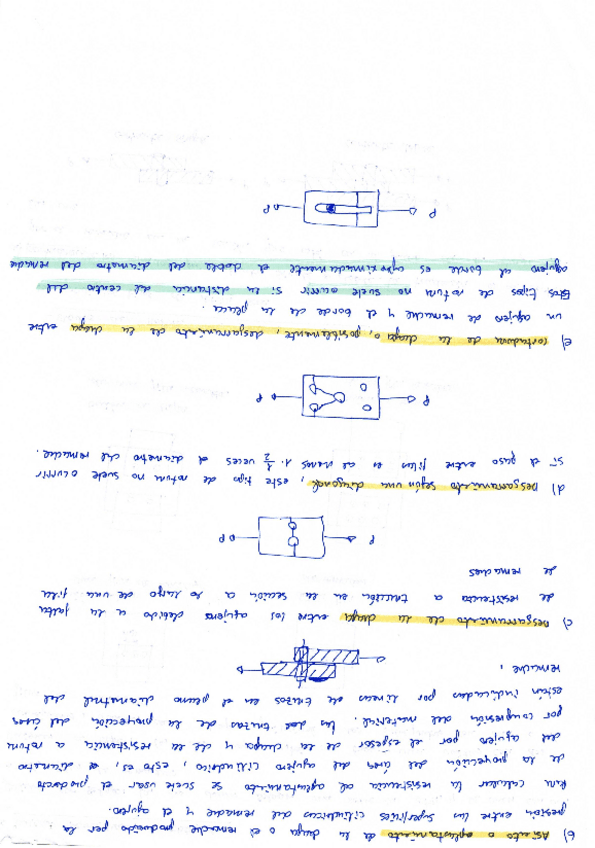 b) Asiento o aplastamiento de la chapa o el remache producido por la
presión entre las superficies cilíndricas del remache y el agujero.
Para calcular la resistencia al aplastamiento se suele usar el producto
de la proyección del área del agujero cilíndrico, esto es, el diámetro
del agujero por el espesor de la chapa y de la resistencia a rotura
por compresión del material. Las trazas de la proyección del área
están indicadas por líneas de trazos en el plano diametral del
remache.
c) Desgarramiento de la chapa entre los agujeros debido a la falta
de resistencia a tracción en la sección a lo largo de una fila
de remaches
P P
d) Desgarramiento según una diagonal, este tipo de rotura no suele ocurrir
si el paso entre filas es al menos 1 1/2 veces el diámetro del remache.
P P
e) Cortadura de la chapa o, posiblemente, desgarramiento de la chapa entre
un agujero de remache y el borde de la placa.
Estos tipos de rotura no suele ocurrir si la distancia del centro del
agujero al borde es aproximadamente el doble del diámetro del remache
P P